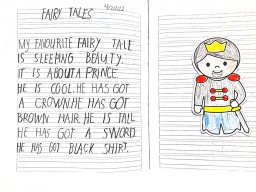 FAIRY TALES
MY FAVOURITE FAIRY TALE
IS SLEEPING BEAUTY.
IT IS ABOUT A PRINCE.
HE IS COOL. HE HAS GOT
A CROWN. HE HAS GOT
BROWN HAIR. HE IS TALL
HE HAS GOT A SWORD
HE HAS GOT BLACK SHIRT.